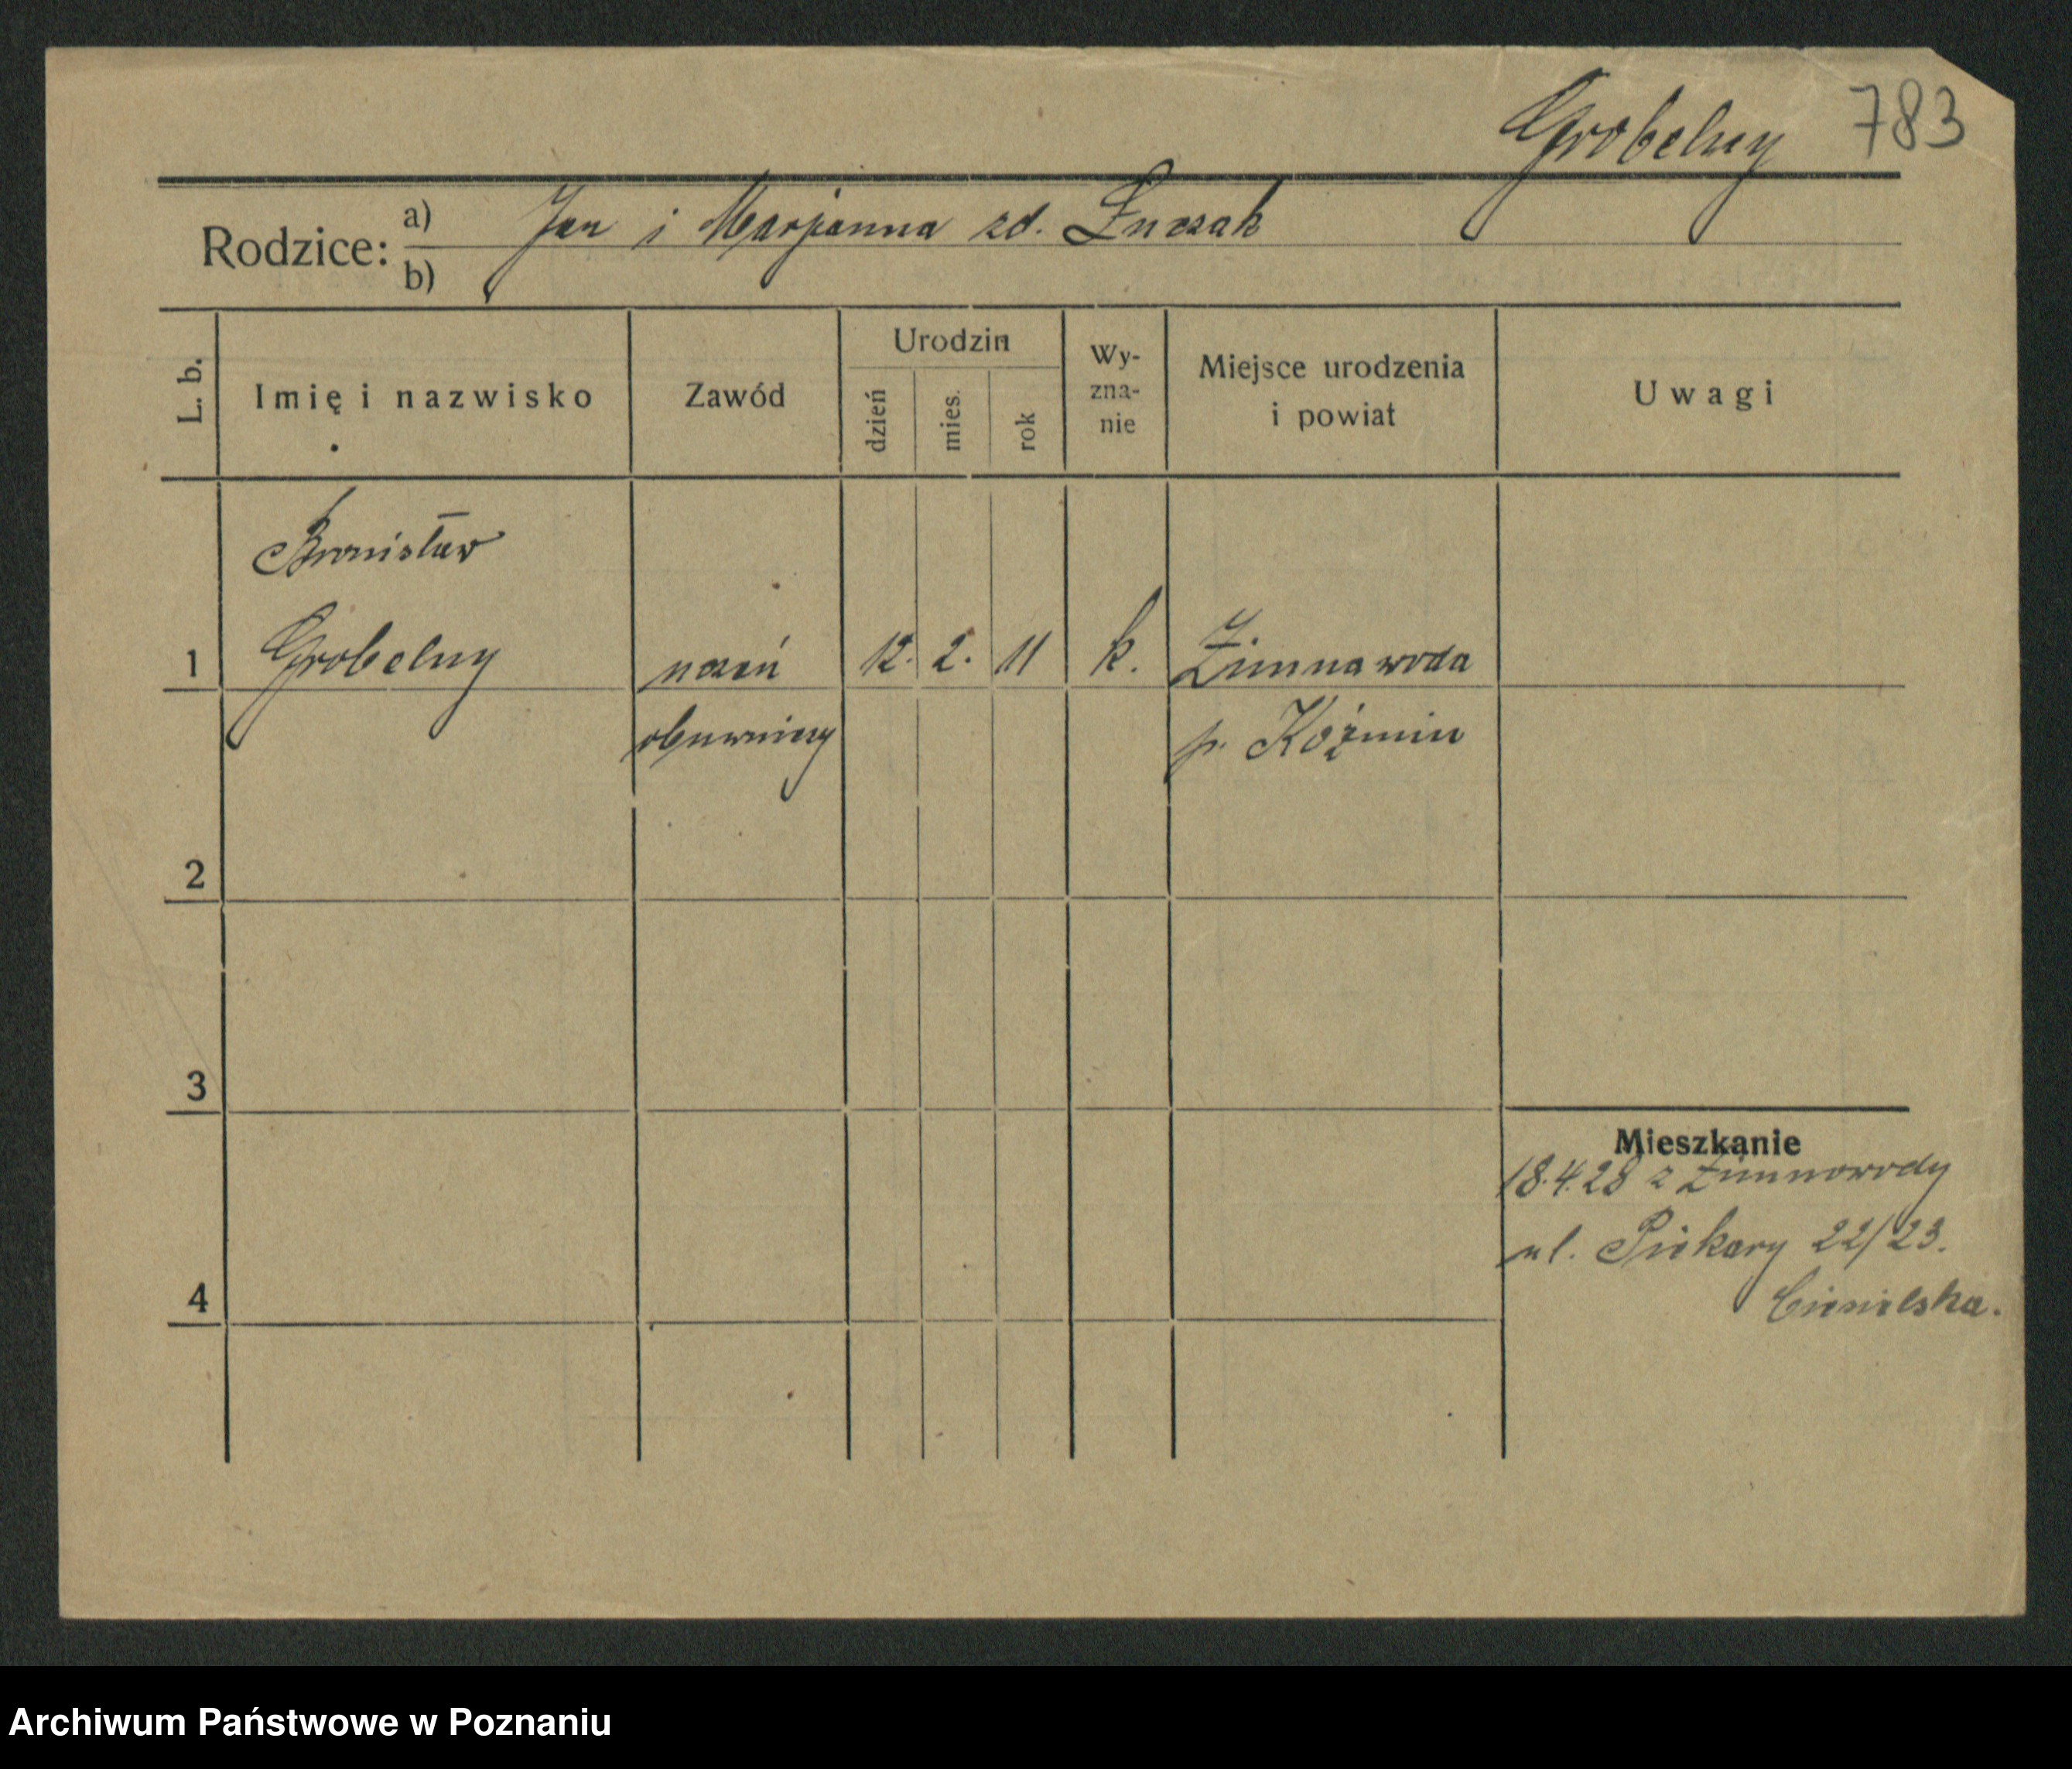 Grobelny 783
Rodzice: a) Jan i Marjanna zd. Łuczak
b)
L. b. Imię i nazwisko Zawód Urodzin dzień mies. rok Wy-zna-nie Miejsce urodzenia i powiat Uwagi
Bronisław
1 Grobelny uczeń 12. 2. 11 k. Zimnawoda
obuwniczy p. Koźmin
2
3
Mieszkanie
18.4.28 z Zimnowody
ul. Piekary 22/23.
4 Ciesielska.
Archiwum Państwowe w Poznaniu